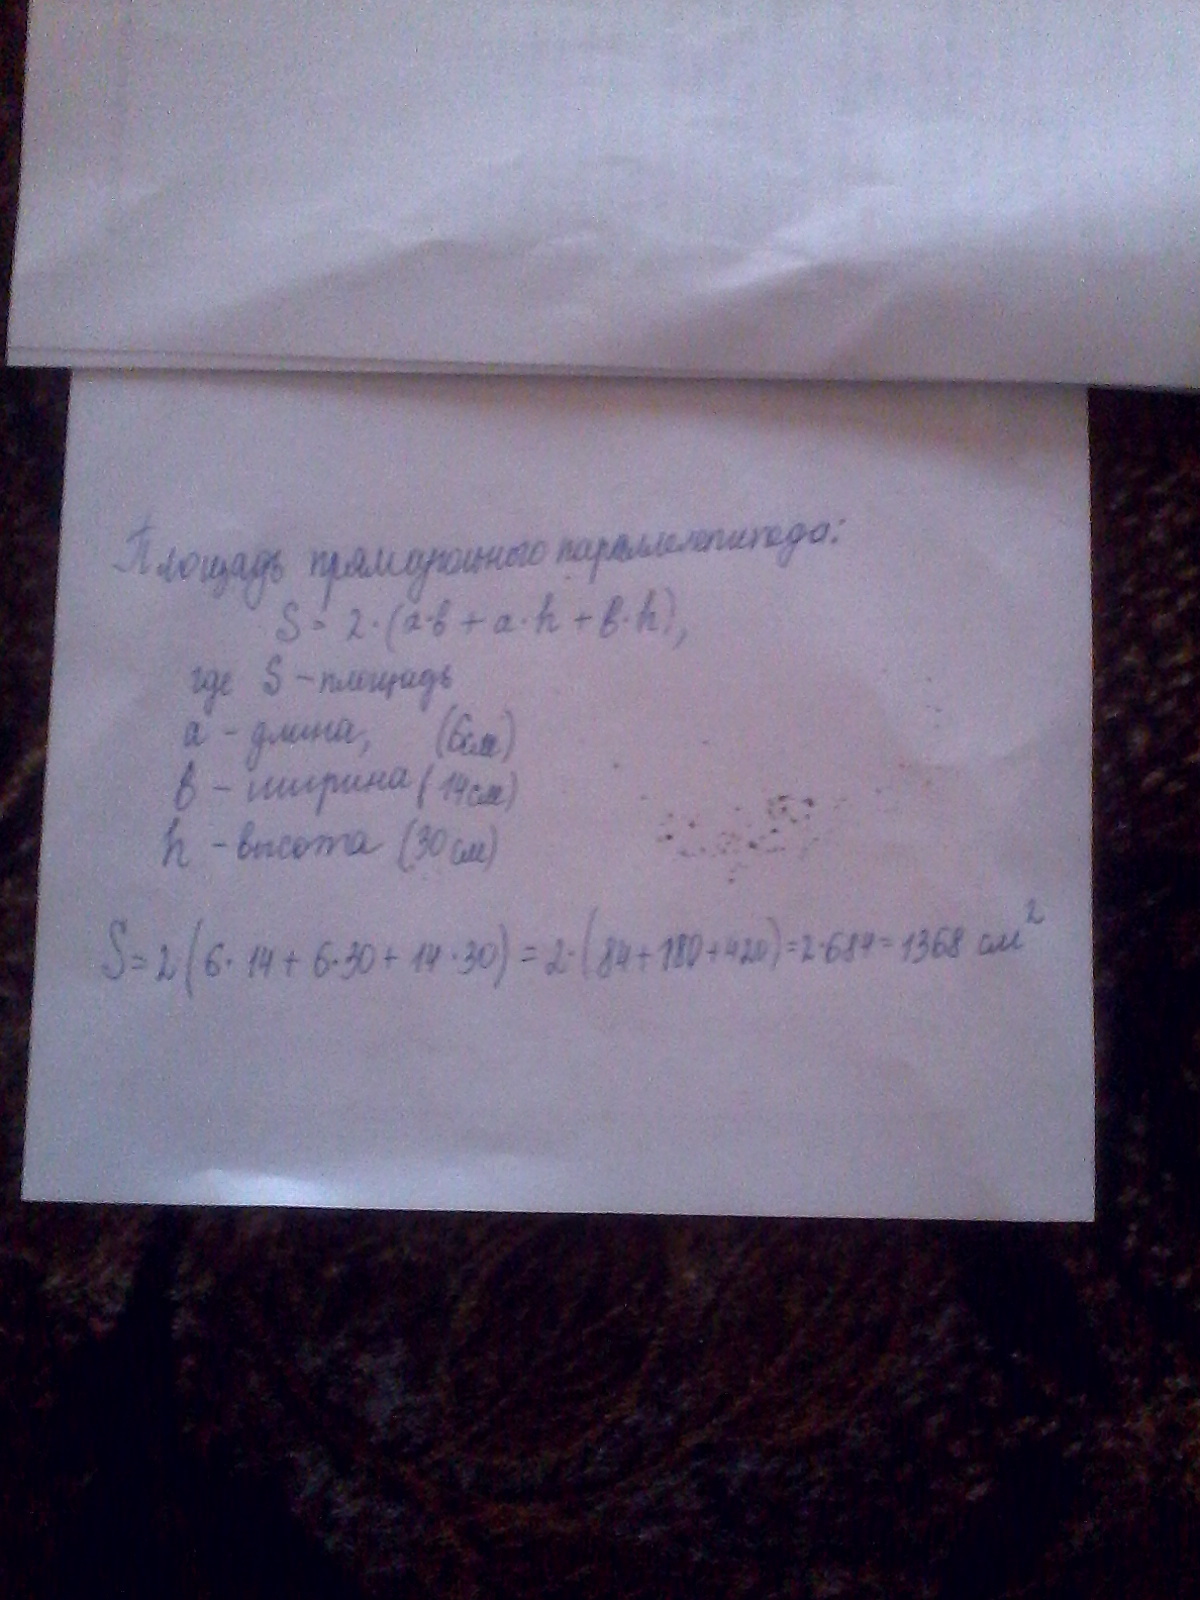 Площадь прямоугольного параллелепипеда:
S = 2·(а·в + а·h + в·h),
где S – площадь
а – длина, (6см)
в – ширина (14см)
h – высота (30см)
S = 2·(6·14 + 6·30 + 14·30) = 2·(84+180+420)=2·684=1368 см²